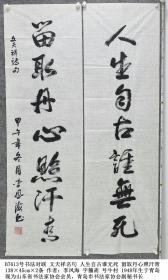 人生自古誰無死
留取丹心照汗青
文天祥诗句
甲午年冬月李凤海书
B7613号书法对联 文天祥名句 人生自古谁无死 留取丹心照汗青
138×45cm×2条 作者：李凤海 字瀚斋 号牛村 1948年生于青岛
现为山东省书法家协会会员、青岛市书法家协会副秘书长